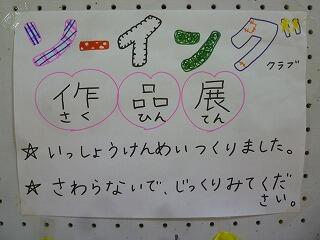 ソーイング クラブ
作品展
さくひんてん
☆ いっしょうけんめいつくりました。
☆ さわらないで、じっくりみてくだ
さい。